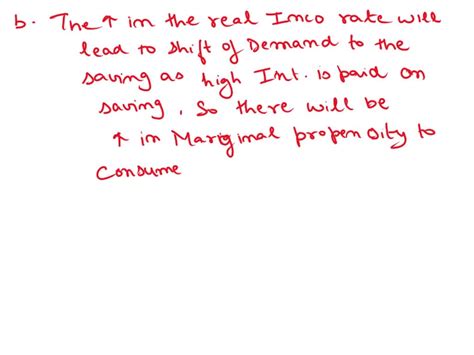 b. The ↑ in the real Inco rate will
lead to shift of Demand to the
saving as high Int. is paid on
saving, So there will be
↑ in Marginal propensity to
Consume